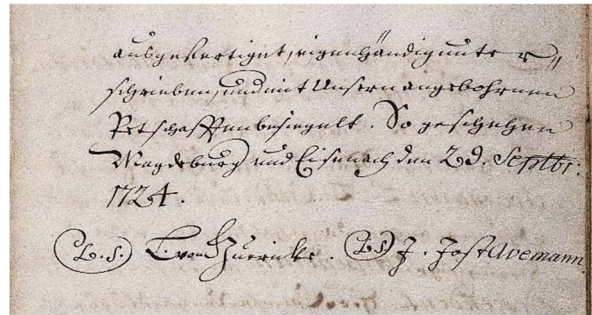 ausgefertiget, eigenhändig unter„
schrieben, und mit Unsern angebohrnen
Petschafften besiegelt. So geschehen
Magdeburg und Eisenach den 2d. Septbr:
1724.
L.S. L. von Guericke. L.S. J. Jost Avemann